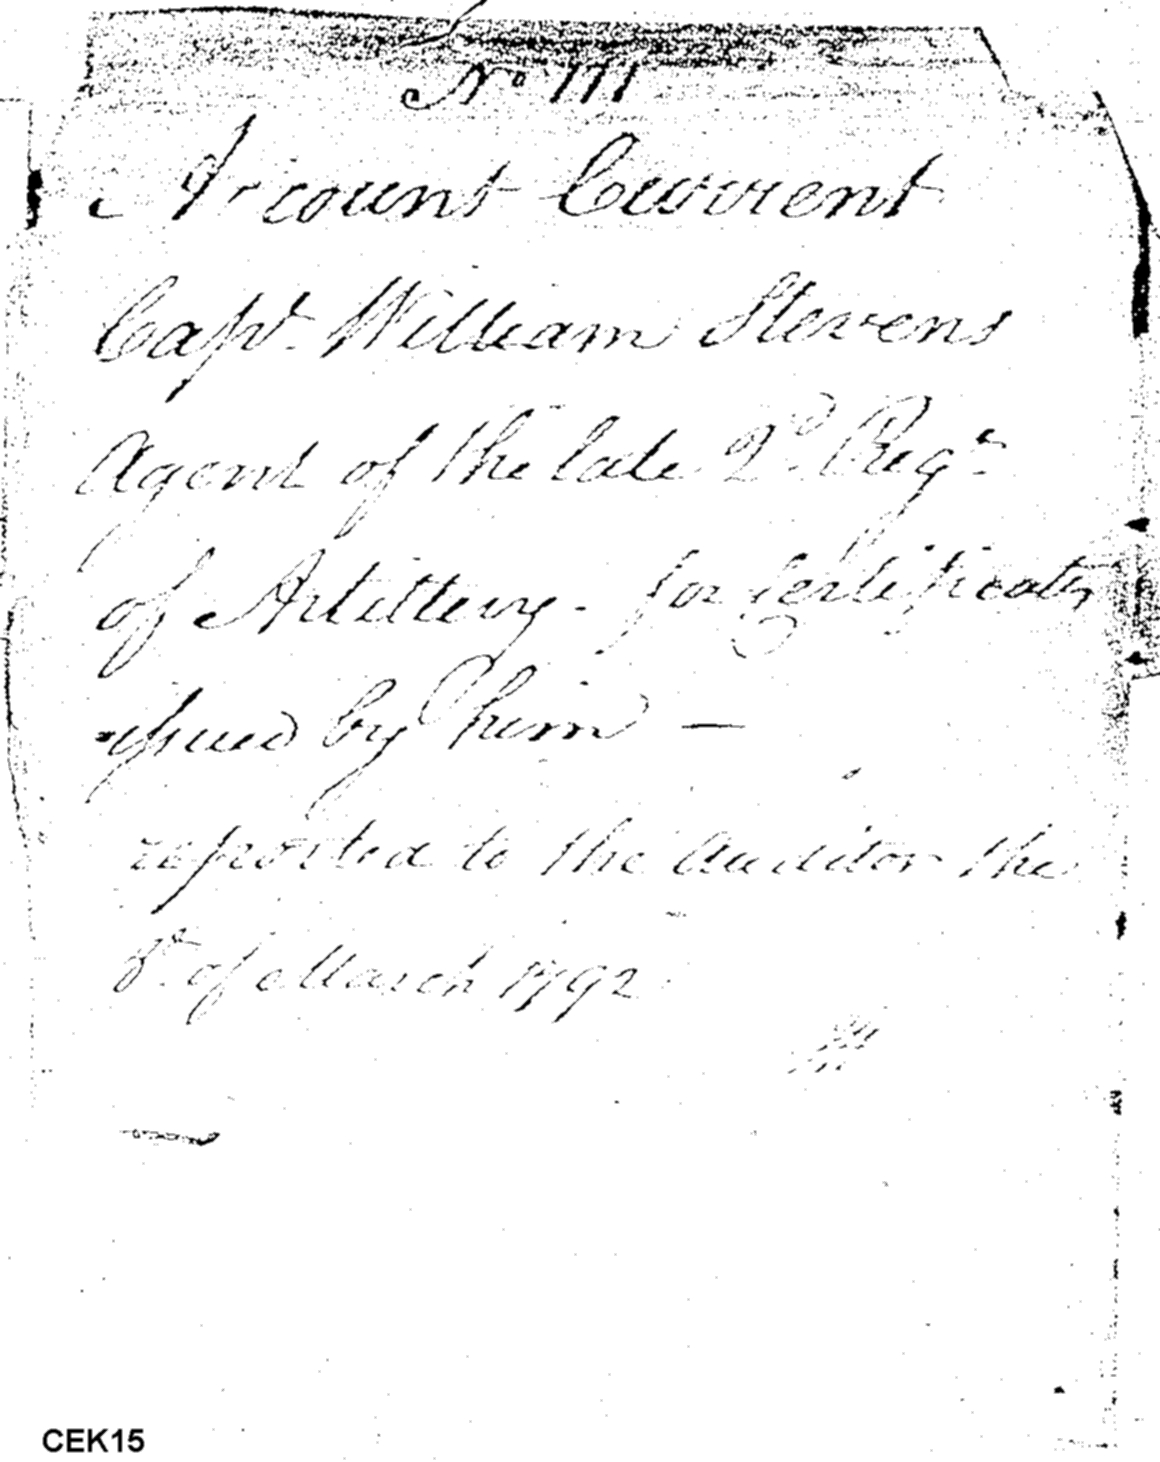 No 111
Account Current
Capt. William Stevens
Agent of the late 2d. Regt.
of Artillery - for Certificates
issued by him —
reported to the Auditor the
of March 1792
CEK15